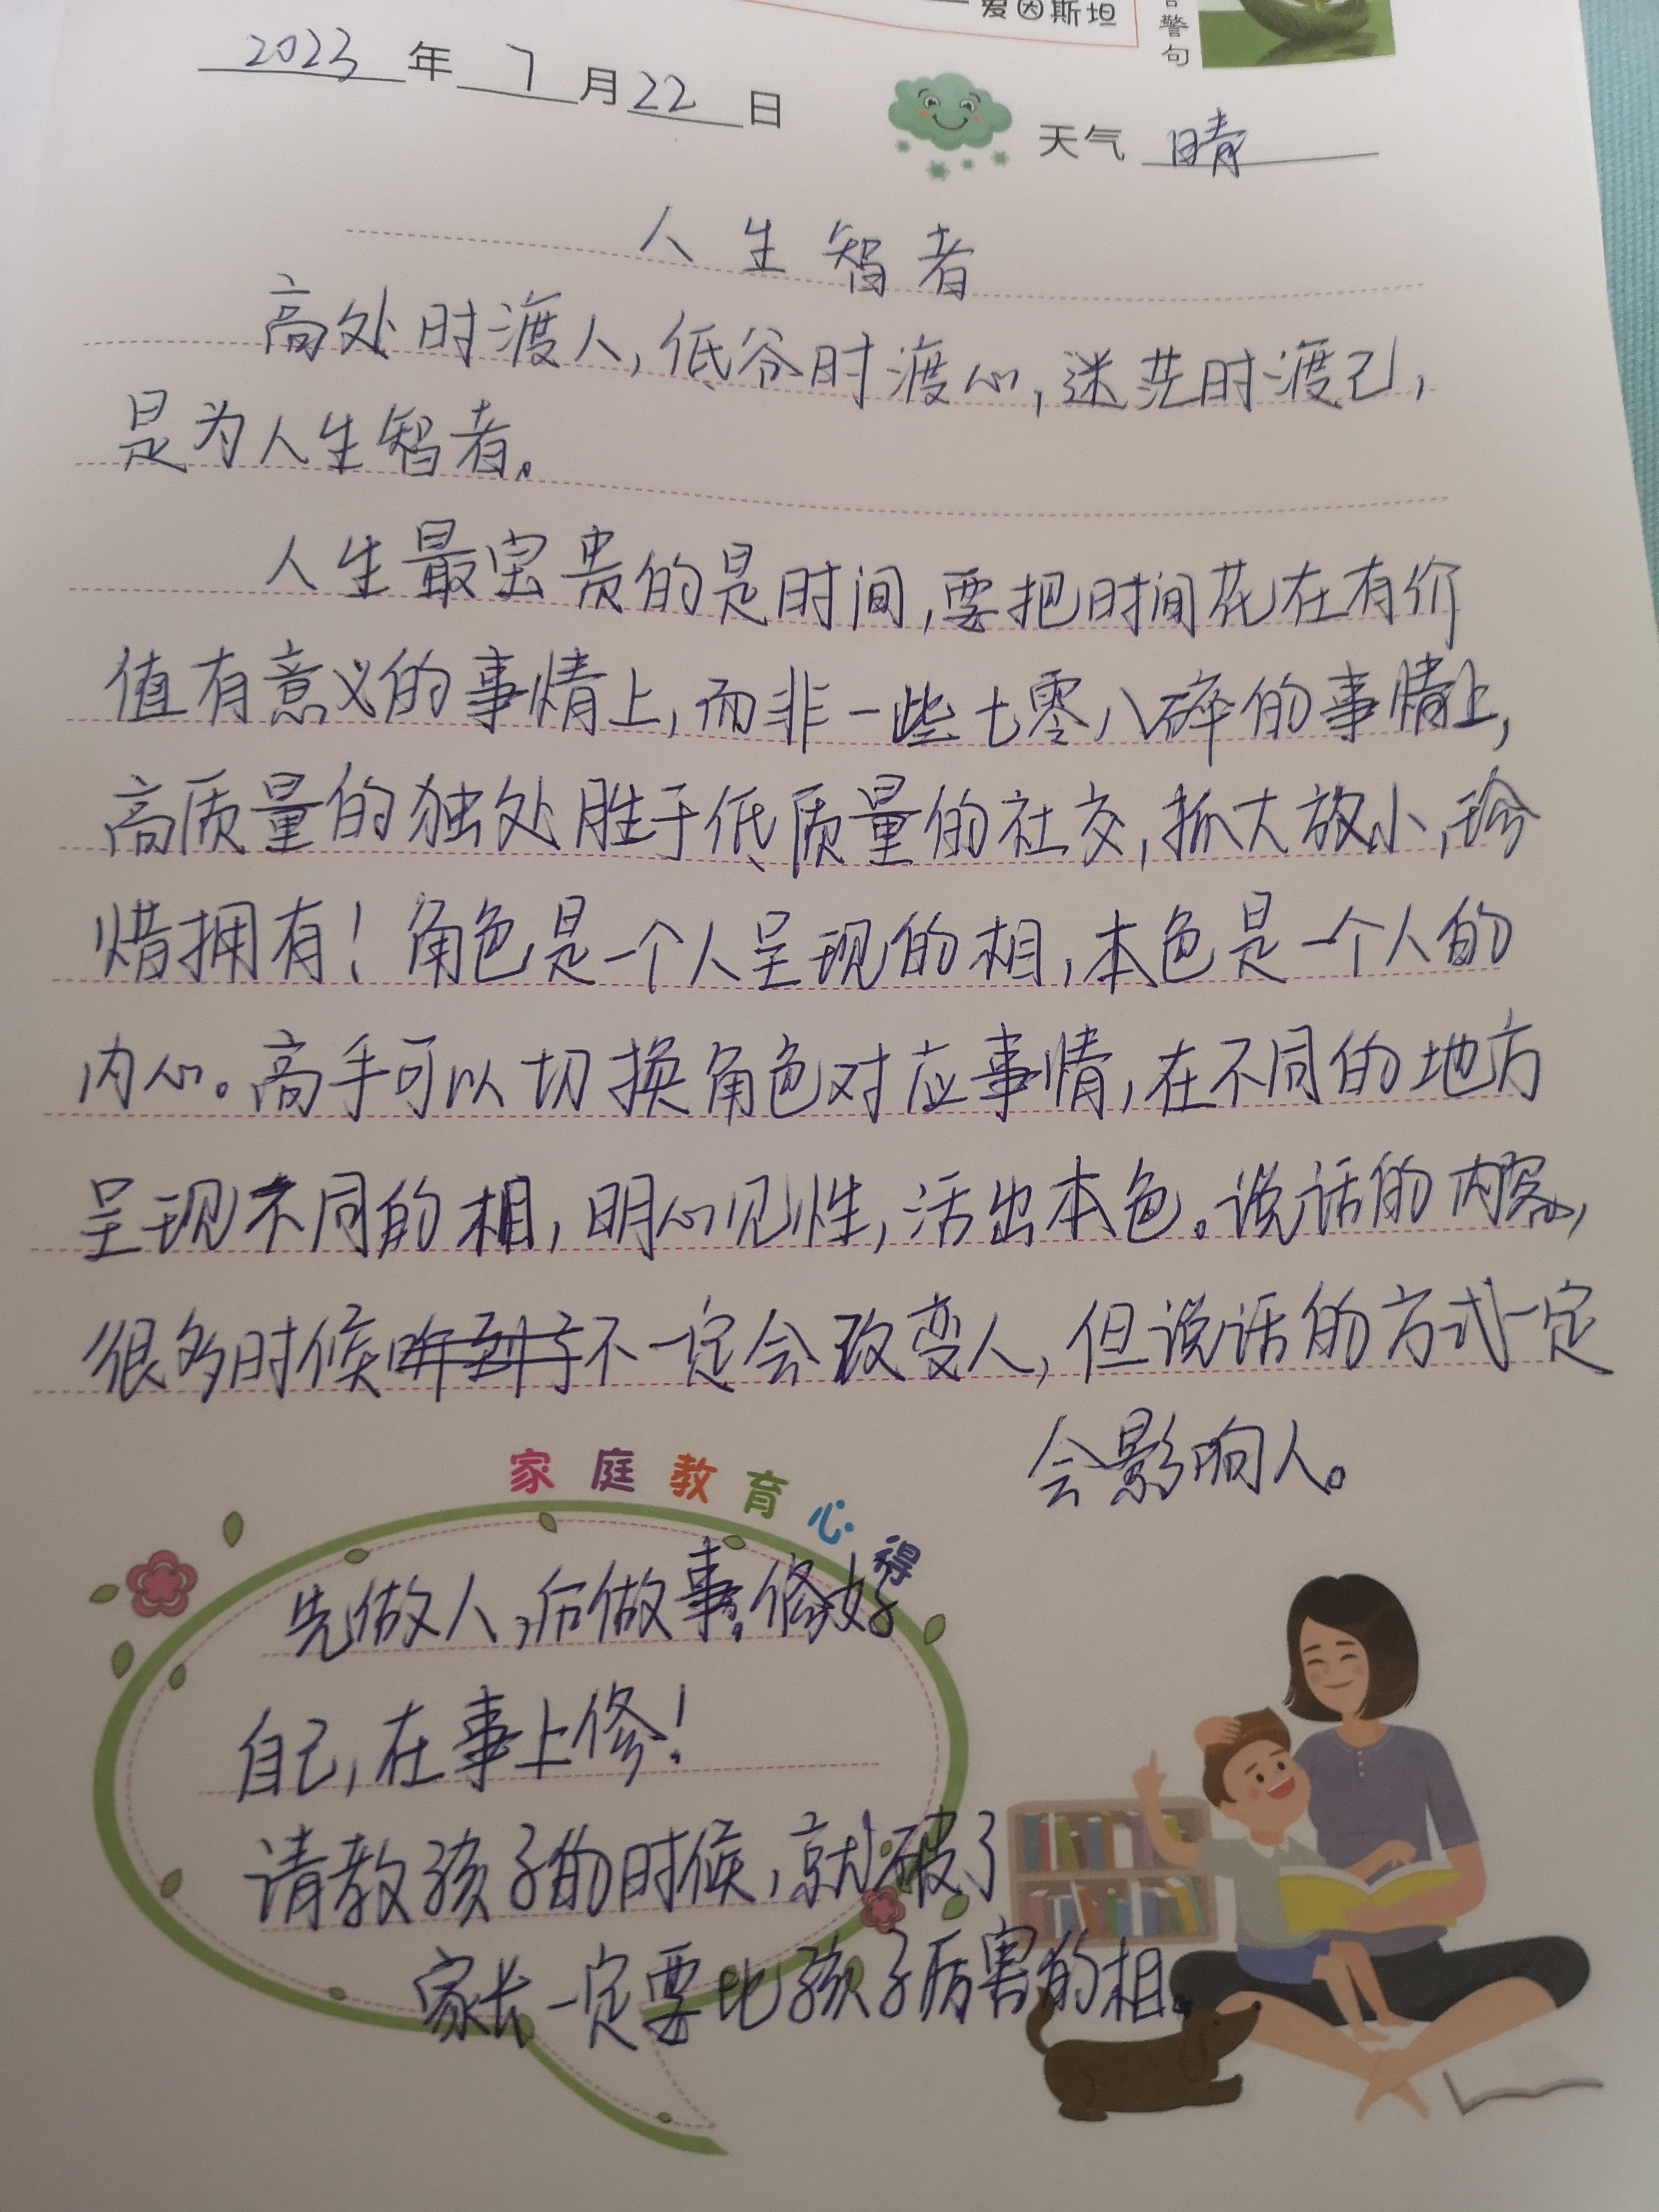 爱因斯坦
警
句
2023年7月22日
天气 晴
人生智者
高处时渡人,低谷时渡心,迷茫时渡己,
是为人生智者。
人生最宝贵的是时间,要把时间花在有价
值有意义的事情上,而非一些七零八碎的事情上,
高质量的独处胜于低质量的社交,抓大放小,珍
惜拥有!角色是一个人呈现的相,本色是一个人的
内心。高手可以切换角色对应事情,在不同的地方
呈现不同的相,明心见性,活出本色。说话的内容,
很多时候不一定会改变人,但说话的方式一定
会影响人。
家庭教育心得
先做人,后做事。修好
自己,在事上修!
请教孩子的时候,就破了
家长一定要比孩子厉害的相。